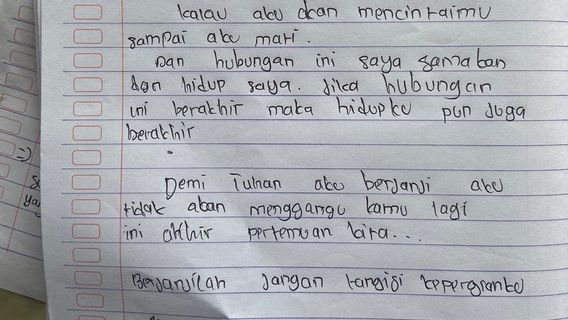 kalau aku akan mencintaimu
sampai aku mati.
Dan hubungan ini saya samakan
dgn hidup saya. Jika hubungan
ini berakhir maka hidupku pun Juga
berakhir
Demi Tuhan aku berjanji aku
tidak akan menggangu kamu lagi
ini akhir pertemuan kita...
Berjanjilah Jangan tangisi kepergianku